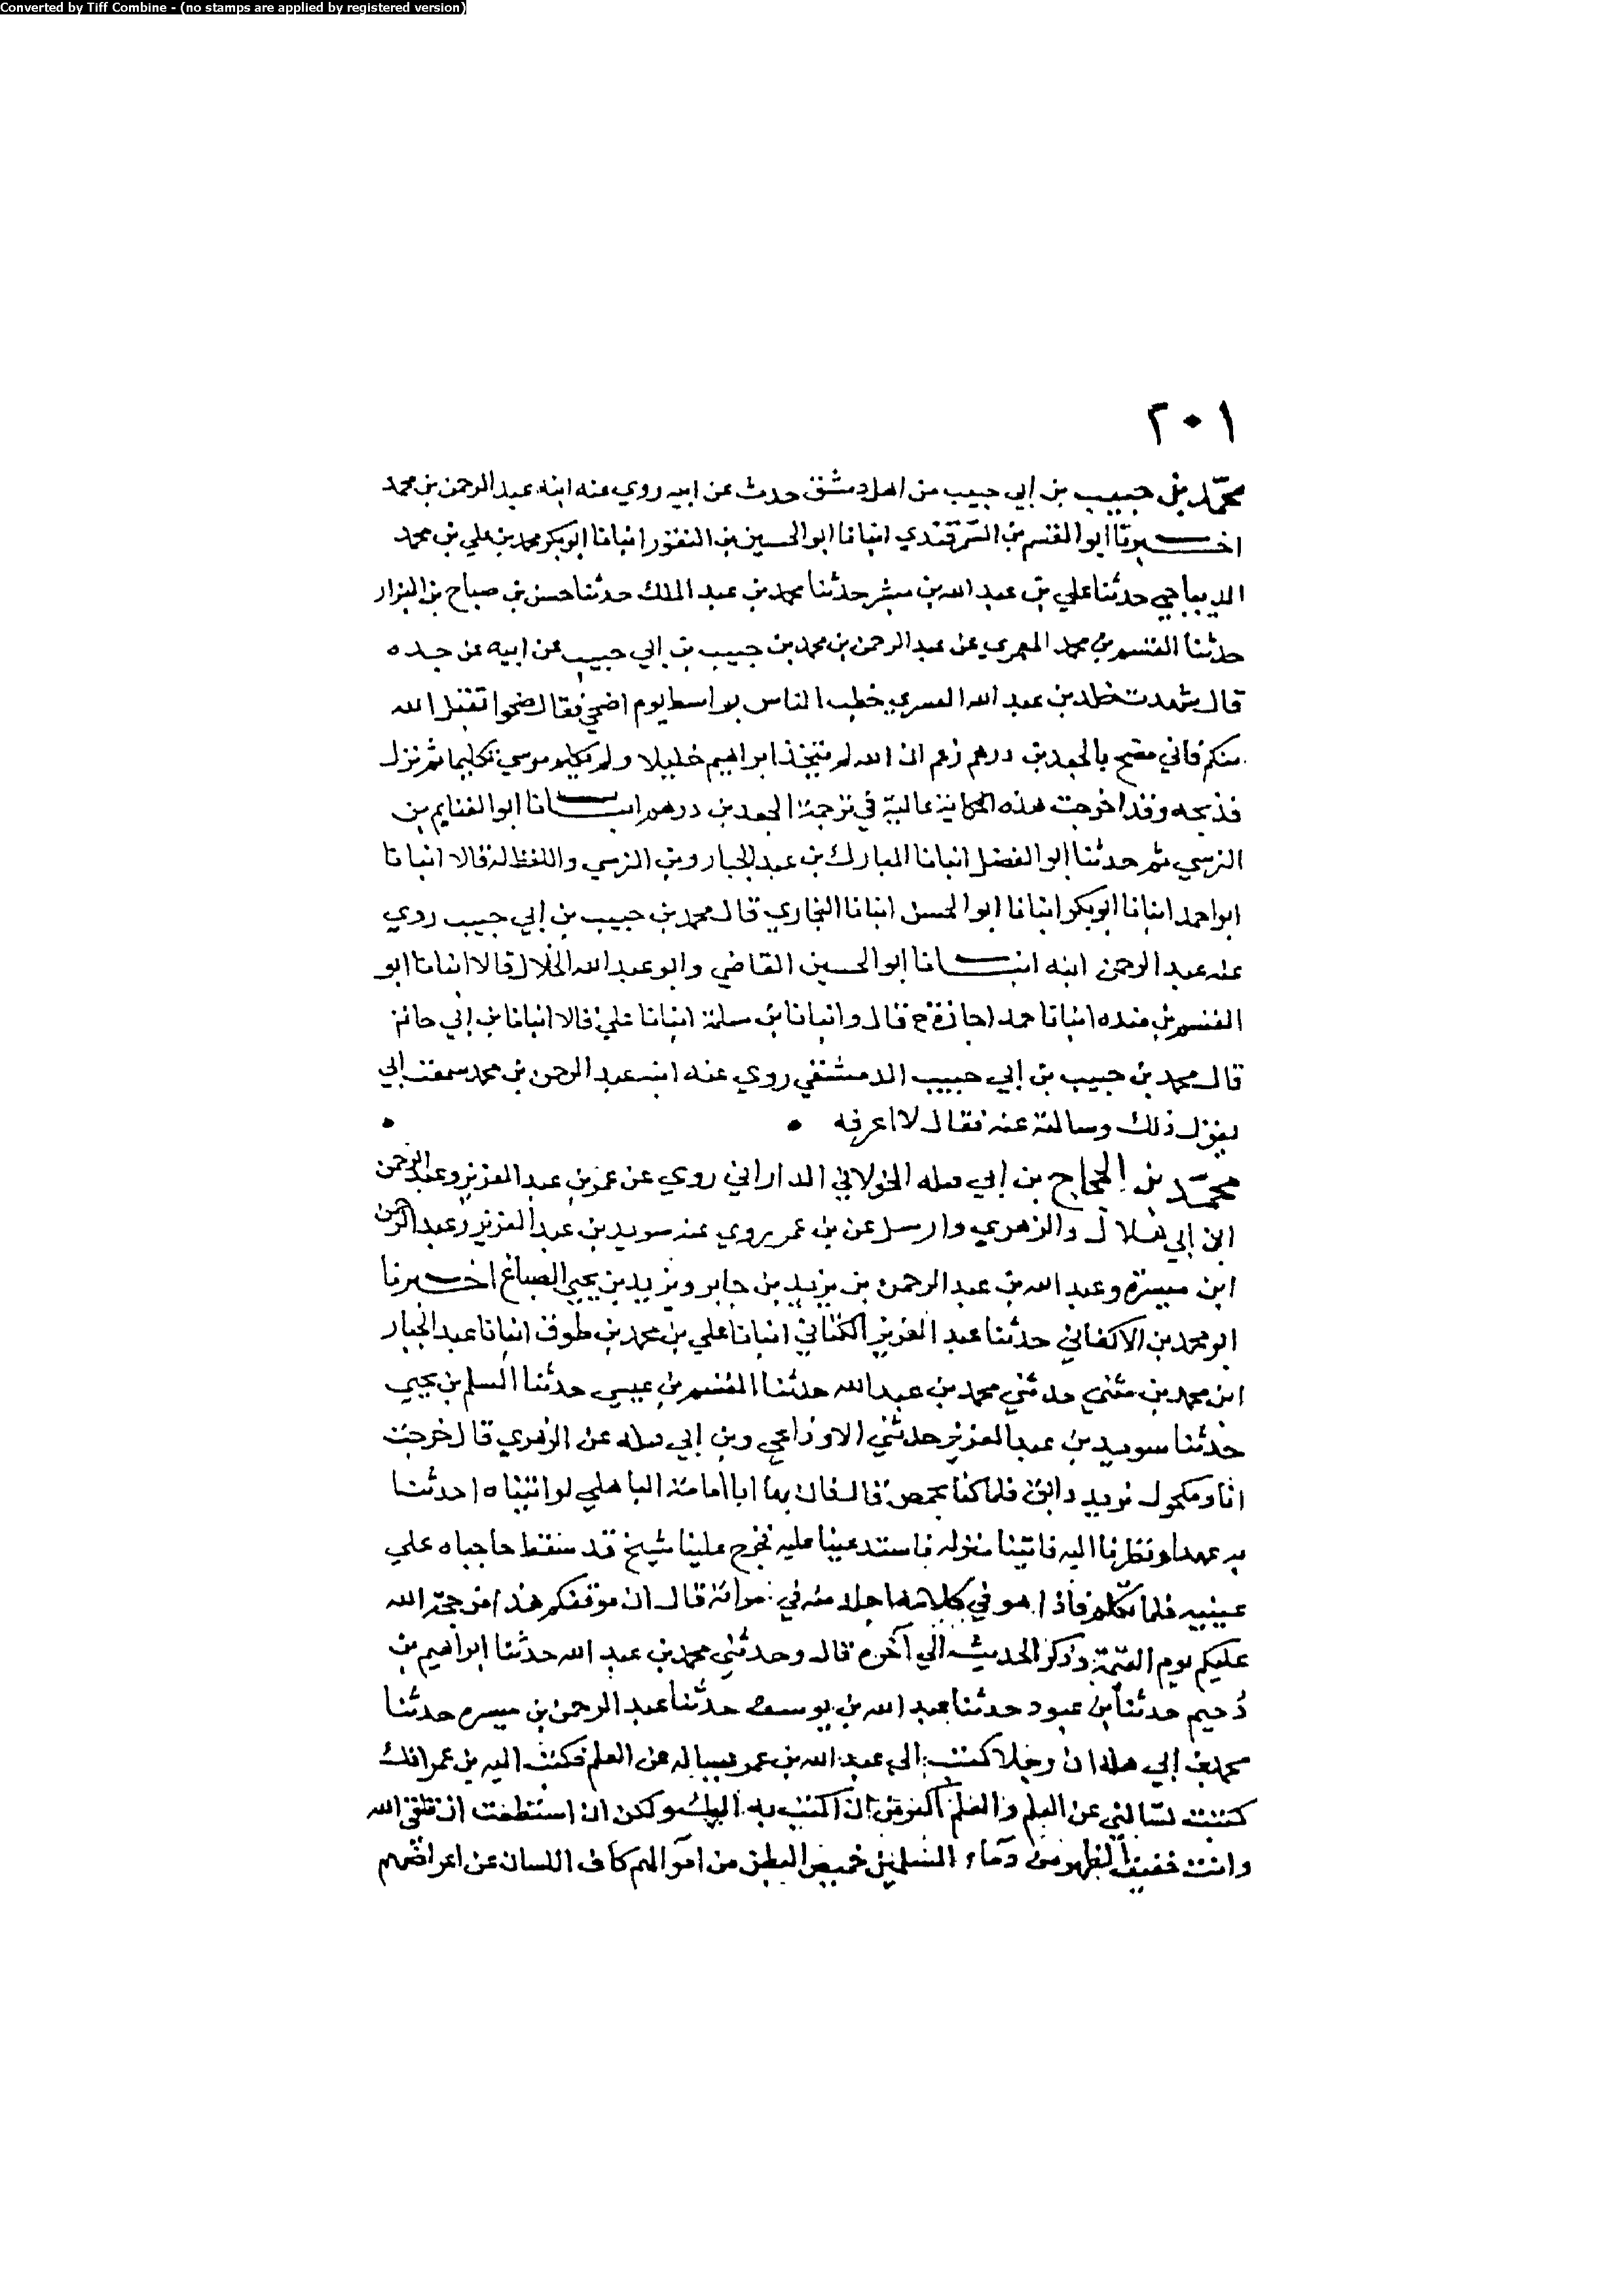 Converted by Tiff Combine - (no stamps are applied by registered version)
٢٠١
محمد بن حبيب بن ابي حبيب من اهل دمشق حدث عن ابيه روي عنه ابنه عبد الرحمن بن محمد
اخبرنا ابو القسم بن السمرقندي انبانا ابو الحسين بن النقور انبانا ابو بكر محمد بن علي بن محمد
الديباجي حدثنا علي بن عبد الله بن مبشر حدثنا محمد بن عبد الملك حدثنا حسن بن صباح بن البزار
حدثنا القسم بن محمد المعمري عن عبد الرحمن بن محمد بن حبيب بن ابي حبيب عن ابيه عن جده
قال شهدت خلد بن عبد الله القسري خطب الناس بواسط يوم اضحي فقال ضحوا تقبل الله
منكم فاني مضح بالجعد بن درهم زعم ان الله لم يتخذ ابراهيم خليلا ولم يكلم موسي تكليما ثم نزل
فذبحه وقد اخرجت هذه الحكاية عالية في ترجمة الجعد بن درهم انبانا ابو الغنايم بن
النرسي ثم حدثنا ابو الفضل انبانا المبارك بن عبد الجبار وبن النرسي واللفظ له قالا انبانا
ابو احمد انبانا ابو بكر انبانا ابو الحسن انبانا البخاري قال محمد بن حبيب بن ابي حبيب روي
عنه عبد الرحمن ابنه انبانا ابو الحسين القاضي وابو عبد الله الخلال قالا انبانا ابو
القسم بن منده انبانا حمد اجازة ح قال وانبانا بن سلمة انبانا علي قالا انبانا بن ابي حاتم
قال محمد بن حبيب بن ابي حبيب الدمشقي روي عنه ابنه عبد الرحمن بن محمد سمعت ابي
يقول ذلك وسالته عنه فقال لا اعرفه
محمد بن الحجاج بن ابي قتله الخولاني الداراني روي عن عمر بن عبد العزيز وعبد الرحمن
ابن ابي هلال والزهري وارسل عن بن عمر يروي عنه سويد بن عبد العزيز وعبد الرحمن
ابن ميسرة وعبد الله بن عبد الرحمن بن يزيد بن جابر ويزيد بن يحيي الصباغ اخبرنا
ابو محمد بن الاكفاني حدثنا عبد العزيز الكتاني انبانا علي بن محمد بن طوق انبانا عبد الجبار
ابن محمد بن مهني حدثني محمد بن عبد الله حدثنا القسم بن عيسي حدثنا السلم بن يحيي
حدثنا سويد بن عبد العزيز حدثني الاوزاعي وبن ابي قتله عن الزهري قال خرجت
انا ومكحول نريد دابق فلما كنا بحمص قال لفان بها ابا امامة الباهلي لو اتيناه احدثنا
به عهدا ونظرنا اليه فاتينا منزله فاستدعينا عليه فخرج علينا شيخ قد سقط حاجباه علي
عينيه فلما تكلم فاذا هو في كلامه اجلد منه في مراته قال ان موقفكم هذا من حجة الله
عليكم يوم القيمة وذكر الحديث الي آخره قال وحدثني محمد بن عبد الله حدثنا ابراهيم بن
دحيم حدثنا بن عبود حدثنا عبد الله بن يوسف حدثنا عبد الرحمن بن ميسره حدثنا
محمد بن ابي قتله ان رجلا كتب الي عبد الله بن عمر يساله عن العلم فكتب اليه بن عمر انك
كتبت تسالني عن العلم والعلم اكبر من ان اكتب به اليك ولكن ان استطعت ان تلقي الله
وانت خفيف الظهر من دماء المسلمين خميص البطن من اموالهم كاف اللسان عن اعراضهم